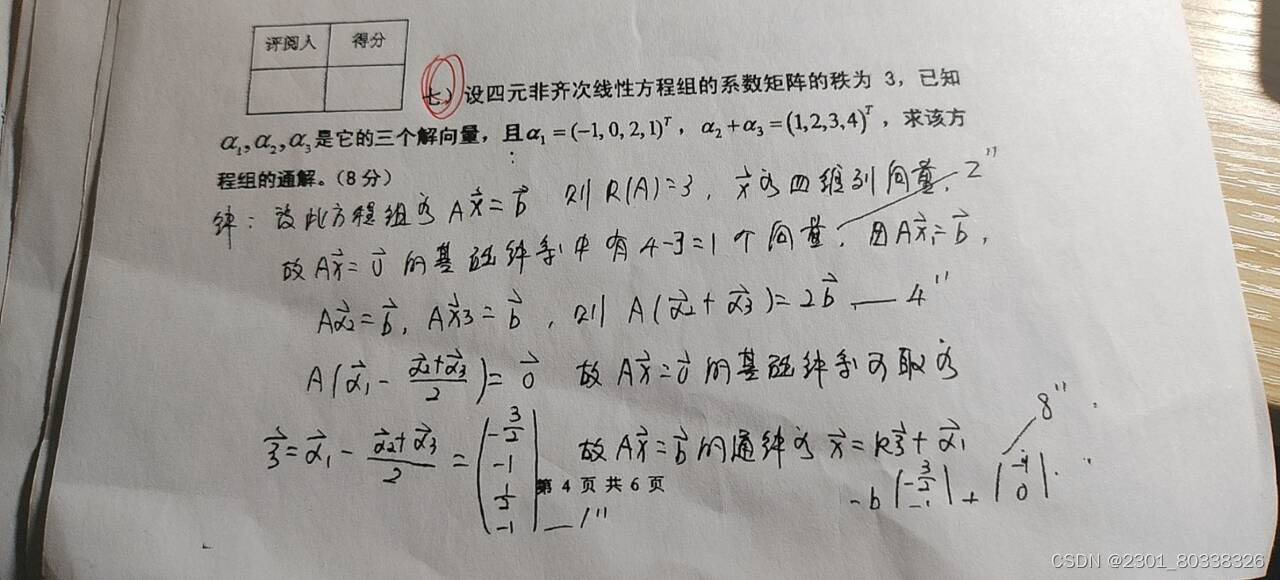 评阅人 得分
七、设四元非齐次线性方程组的系数矩阵的秩为 3，已知
α₁,α₂,α₃是它的三个解向量，且α₁=(−1,0,2,1)ᵀ，α₂+α₃=(1,2,3,4)ᵀ，求该方
程组的通解。（8分）
解：设此方程组为 Ax⃗=b⃗ 则 R(A)=3，x⃗为四维列向量. 2"
故Ax⃗=0⃗ 的基础解系中有 4-3=1 个向量. 因Aα⃗₁=b⃗，
Aα⃗₂=b⃗，Aα⃗₃=b⃗，则 A(α⃗₂+α⃗₃)=2b⃗ — 4"
A(α⃗₁ - (α⃗₂+α⃗₃)/2)=0⃗ 故Ax⃗=0⃗ 的基础解系可取为
ξ⃗=α⃗₁ - (α⃗₂+α⃗₃)/2 = (-3/2 -1 1/2 -1) 故Ax⃗=b⃗ 的通解为 x⃗=kξ⃗+α⃗₁ 8"
第 4 页 共 6 页
CSDN @2301_80338326